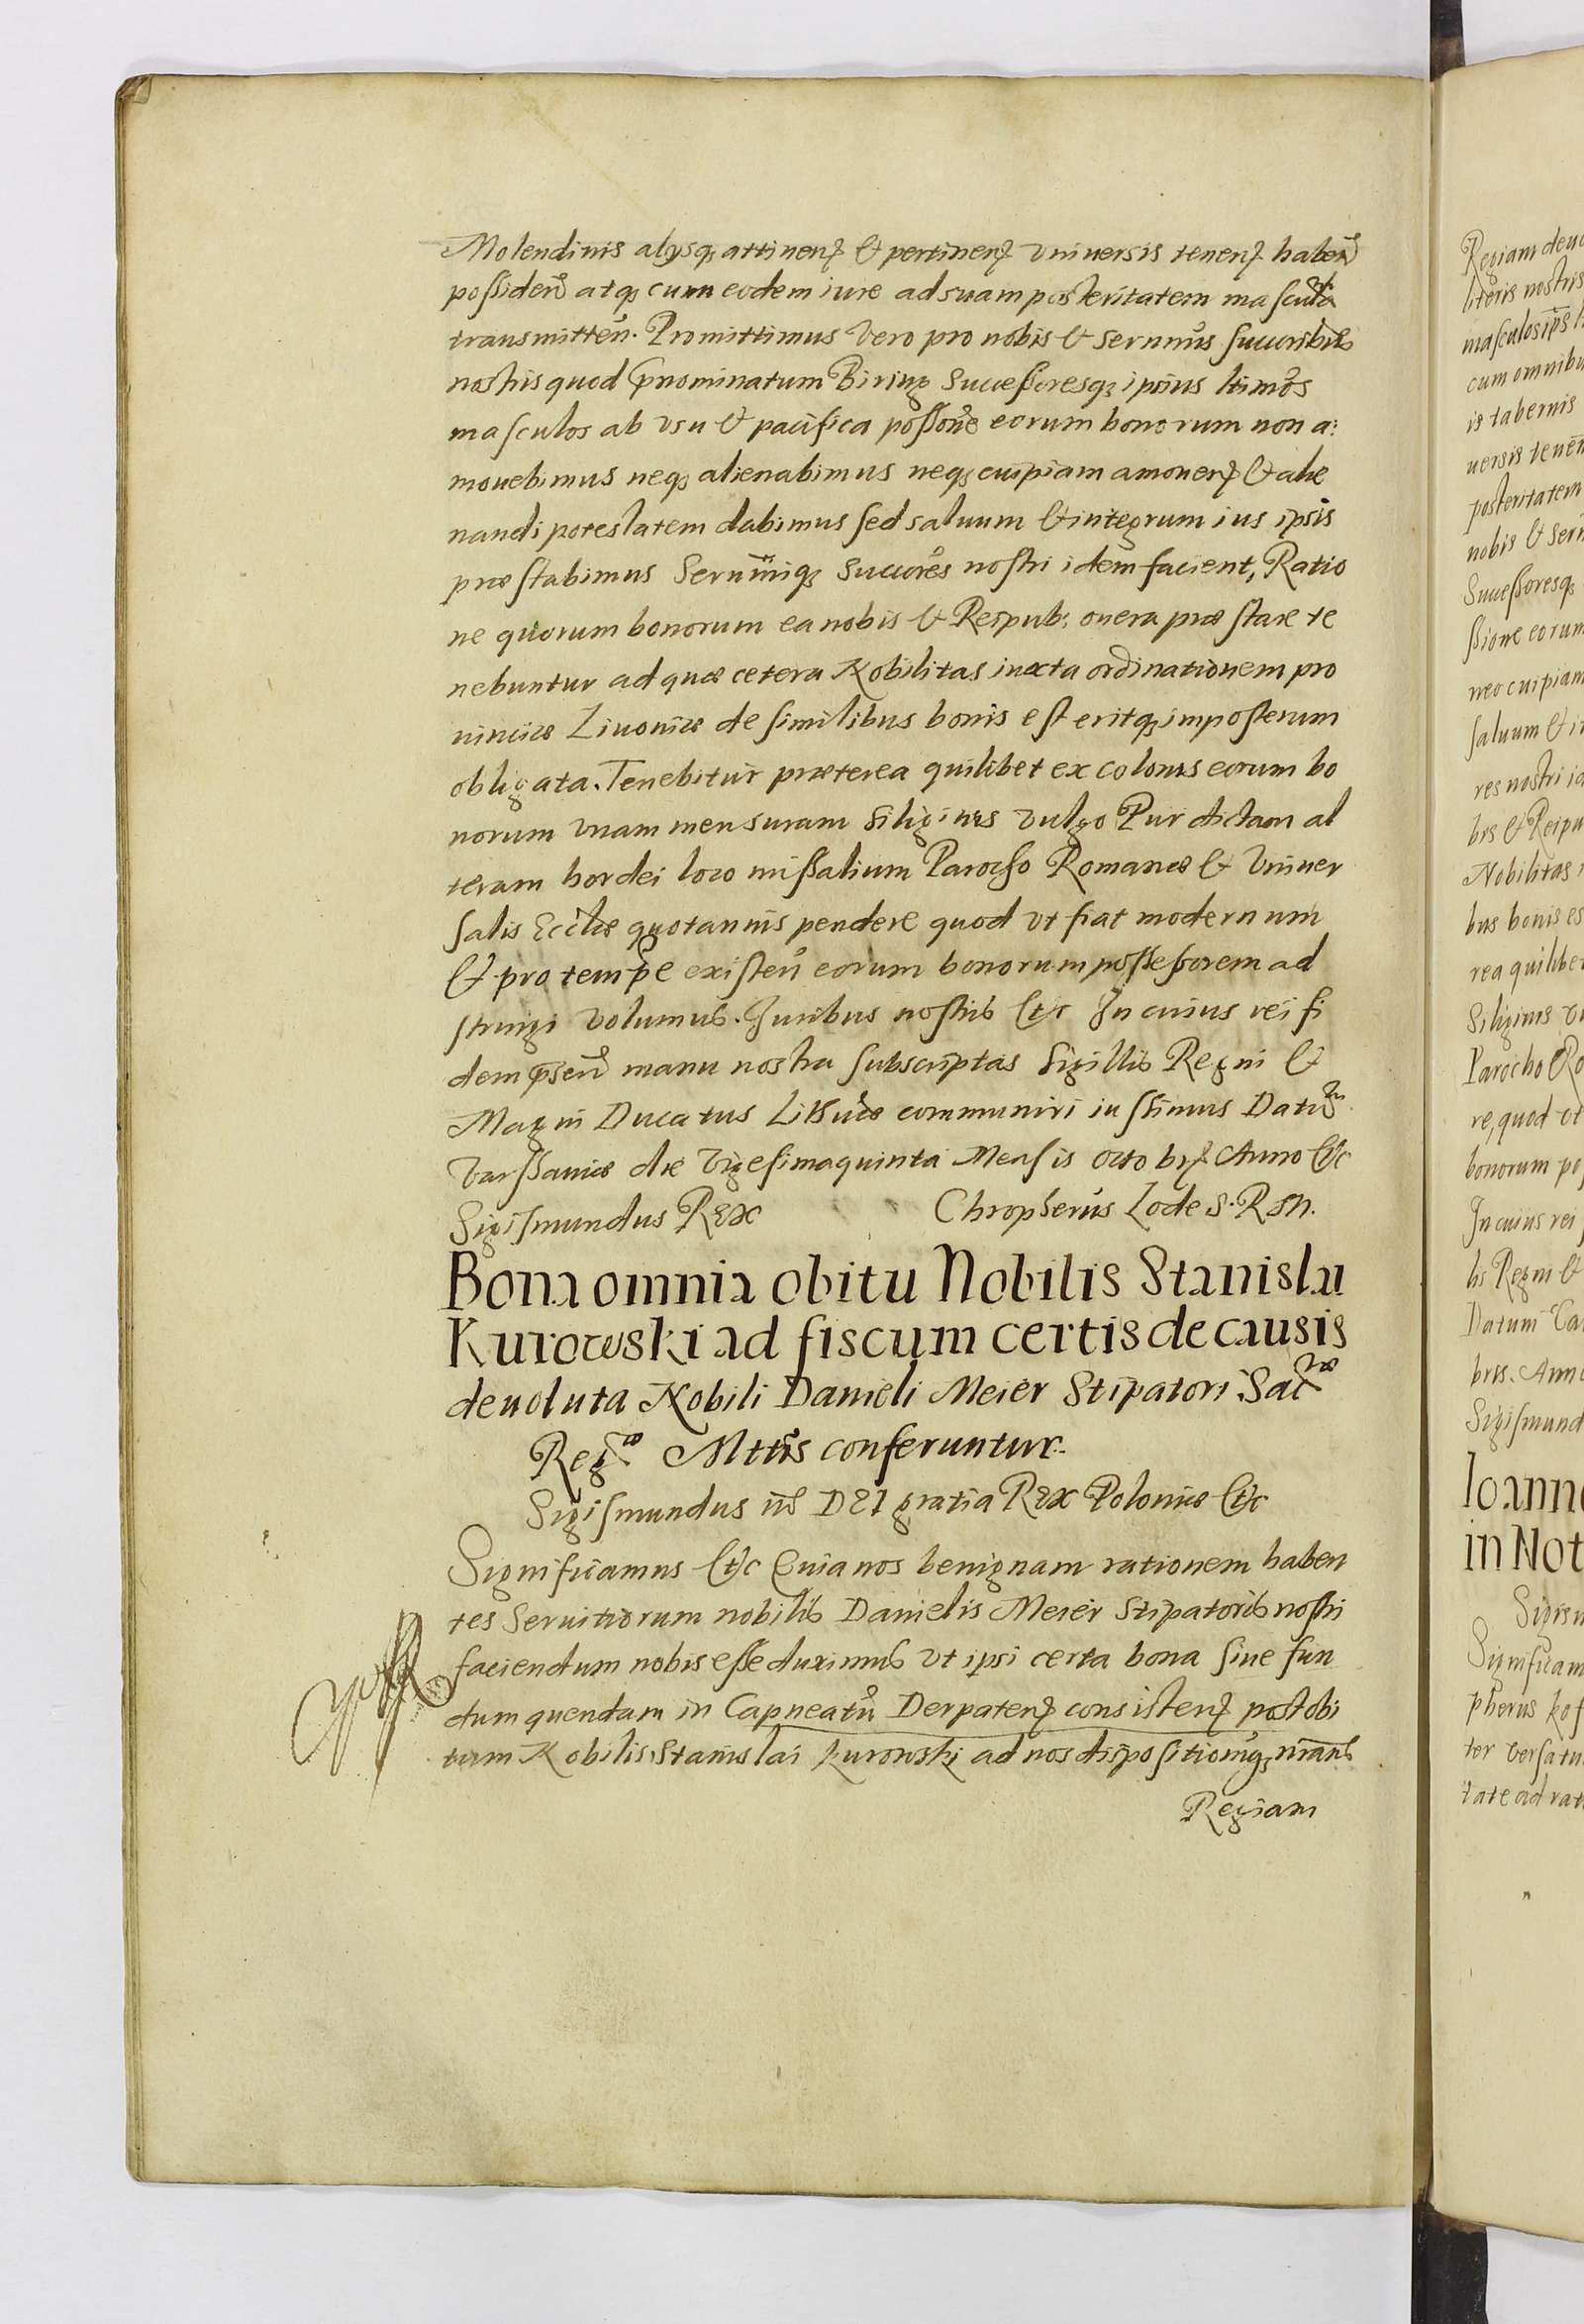 Molendinis alysq attinen & pertinen vniuersis tenen haben
possiden atq cum eodem iure ad suam posteritatem mascula
transmitten. Promittimus vero pro nobis & sernmis succoribus
nostris quod pnominatum Biring Successoresq ipsius ltimos
masculos ab vsu & pacifica possone eorum bonorum non a:
mouebimus neq alienabimus neq cuipiam amouen & alie
nandi potestatem dabimus sed saluum & integrum ius ipsis
præstabimus Sernmiq Succores nostri idem facient, Ratio
ne quorum bonorum ea nobis & Reipub: onera præstare te
nebuntur ad quæ cetera Nobilitas iuxta ordinationem pro
uinciæ Liuoniæ de similibus bonis est eritq imposterum
obligata. Tenebitur præterea quilibet ex colonis eorum bo
norum vnam mensuram Siliginis vulgo Pur dictam al
teram hordei loco missalium Parocho Romanæ & Vniuer
salis Ecclæ quotannis pendere quod vt fiat modernum
& pro tempe existen eorum bonorum possessorem ad
stringi volumus. Iuribus nostris &c In cuius rei fi
dem psen manu nostra subscriptas Sigillis Regni &
Magni Ducatus Lithuæ communiri iussimus Datum
Varssauiæ die Vigesimaquinta Mensis Octobr Anno &c
Sigismundus Rex Chropherus Lode S. R. M.
Bona omnia obitu Nobilis Stanislai
Kurowski ad fiscum certis de causis
deuoluta Nobili Danieli Meier Stipatori Sacræ
Regæ Mttis conferuntur.
Sigismundus iiis DEI gratia Rex Poloniæ &c
Significamus &c Quia nos benignam rationem haben
tes Seruitiorum nobilis Danielis Meier Stipatoris nostri
faciendum nobis esse duximus vt ipsi certa bona siue fun
dum quendam in Capneatu Derpaten consisten post obi
tum Nobilis Stanislai Kurowski ad nos dispositionemq nram
Regiam